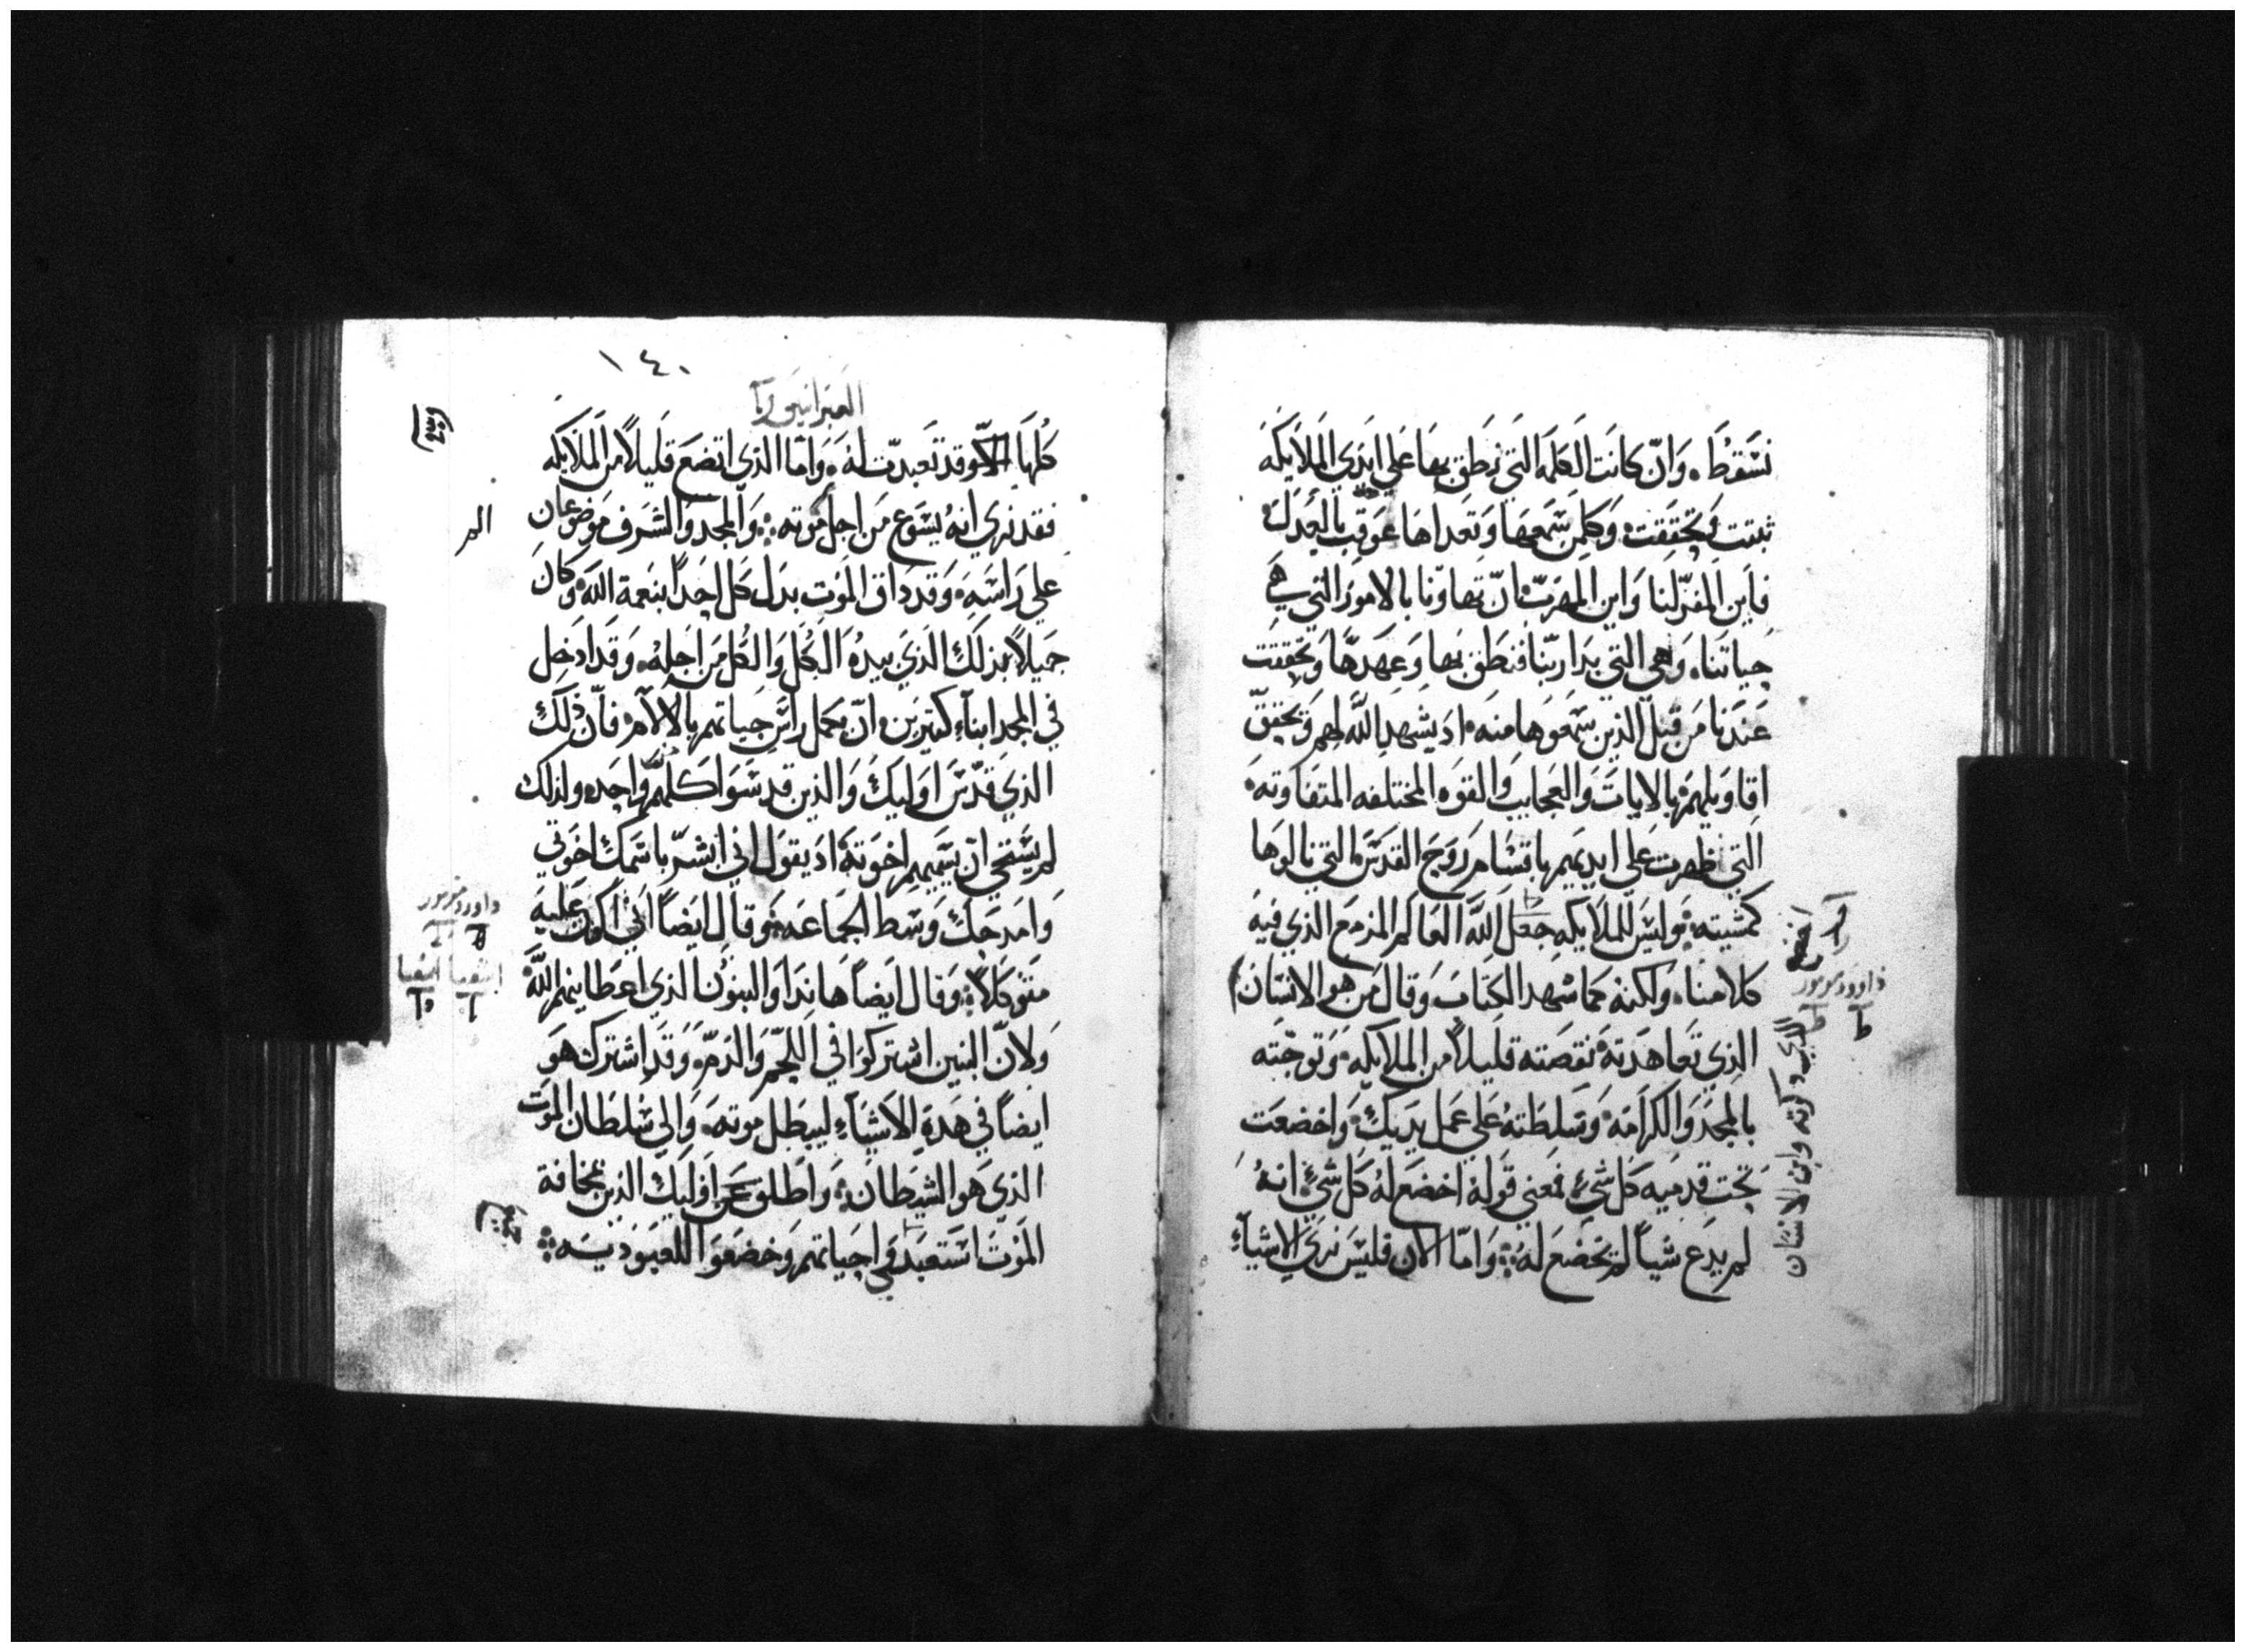 نسقط، وان كانت الكلمه التي نطق بها علي ايدي الملايكه
ثبتت وتحققت، وكلمن سمعها وتعداها عوقب بالعدل
فاين المفر لنا واين المهرب، ان تهاونا بالامور التي هي
حياتنا، وهي التي بدا ربنا فنطق بها وعهدها وتحققت
عندنا من قبل الذين سمعوها منه، اد يشهد الله لهم وتحقيق
اقاويلهم بالايات والعجايب والقوه المختلفه المتفاوته،
التي ظهرت علي ايديهم باقتسام روح القدس، التي نالوها
كمشيته، وليس للملايكه جعل الله العالم المزمع الذي فيه
كلامنا، ولكنه كما شهد الكتاب وقال من هو الانسان
الذي تعاهدته نقصته قليلاً من الملايكه، وتوجته
بالمجد والكرامه، وسلطته علي عمل يديك، واخضعت
تحت قدميه كل شيء، فمعني قوله اخضع له كل شيء، انه
لم يدع شياً لم تخضع له، واما الان فليس نري الاشياء
داوود مزمور
الذي دكرته وابن الانسان
١٤٠
كلها وقد تعبدت له، واما الذي اتضع قليلاً من الملايكه
فقد نري انه يسوع من اجل موته، والمجد والشرف موضوعان
علي راسه، وقد داق الموت بدل كل احد بنعمة الله، وكان
جميلاً بذلك الذي بيده الكل والكل من اجله، وقد ادخل
في المجد ابناء كتيرين، ان يكمل راس حياتهم بالالام، فان ذلك
الذي قدس اوليك والذين قدسوا كلهم واحده ولذلك
لم يستحي ان يسميهم اخوته، اد يقول اني ابشر باسمك اخوتي
وامدحك وسط الجماعه، وقال ايضاً اني اكون عليه
متوكلاً، وقال ايضاً هاندا والبنون الذي اعطانيهم الله
ولان البنين اشتركوا في اللحم والدم، وقد اشترك هو
ايضاً في هده الاشياء، ليبطل موته، والي سلطان الموت
الذي هو الشيطان، واطلق اوليك الذين بمخافة
الموت استعبدوا في حياتهم وخضعوا للعبوديه
داوود مزمور
اشعيا اشعيا